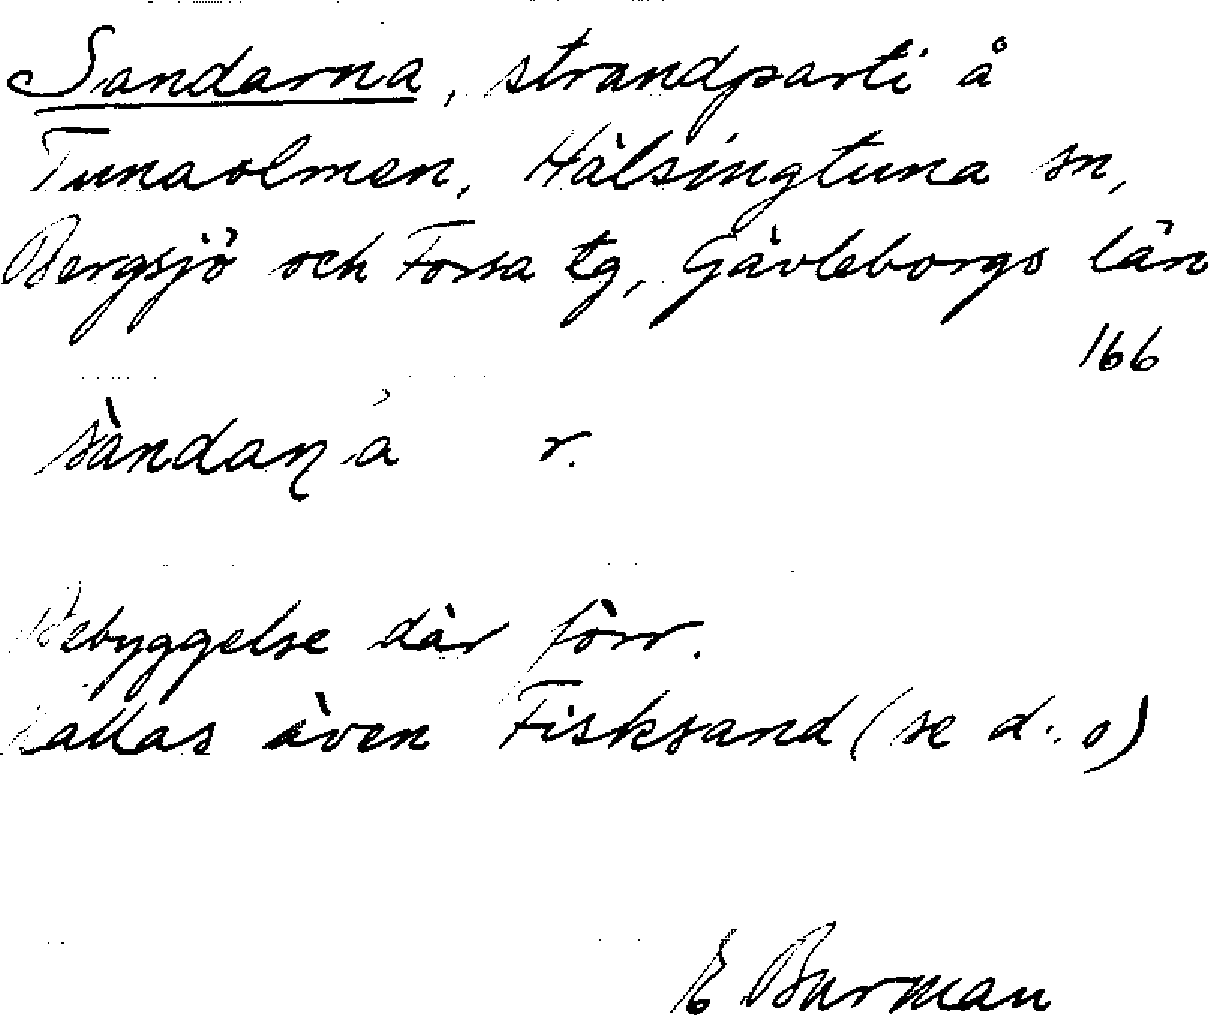 Sandarna, strandparti å
Tunaolmen, Hälsingtuna sn,
Bergsjö och Forsa tg, Gävleborgs län
166
sàndaɳ á r.
Bebyggelse där förr.
Kallas även Fisksand (se d:o)
E Burman